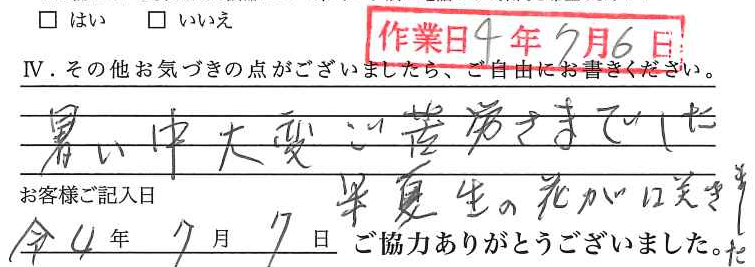 □ はい □ いいえ
作業日 4年7月6日
Ⅳ．その他お気づきの点がございましたら、ご自由にお書きください。
暑い中大変ご苦労さまでした
お客様ご記入日
早夏生の花が咲きました
令4年7月7日 ご協力ありがとうございました。